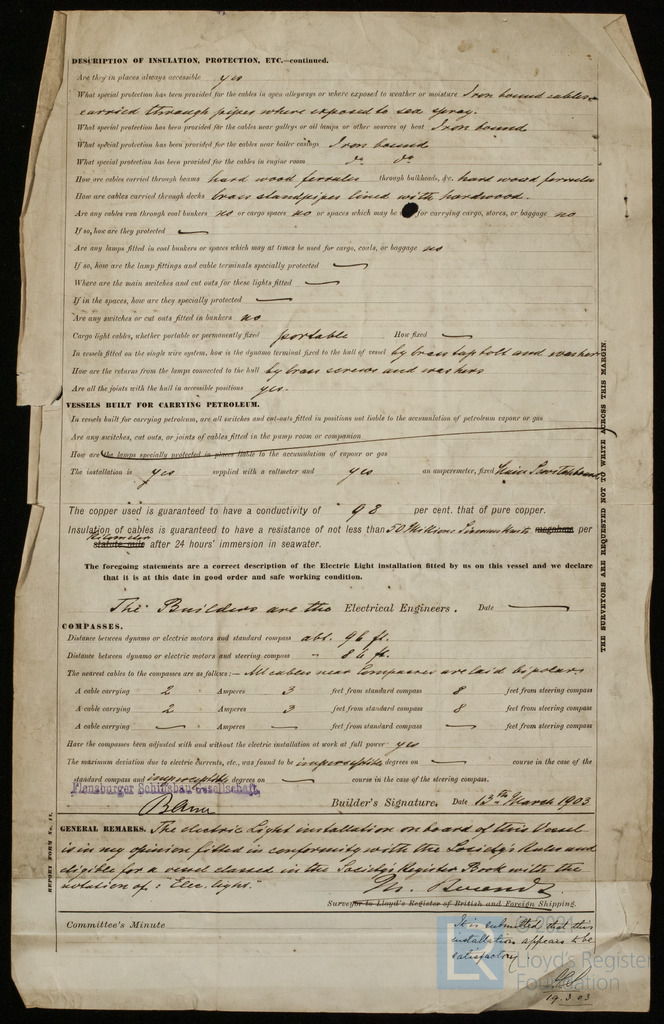 DESCRIPTION OF INSULATION, PROTECTION, ETC.—continued.
Are they in places always accessible yes
What special protection has been provided for the cables in open alleyways or where exposed to weather or moisture Iron bound cables
carried through pipes where exposed to sea spray.
What special protection has been provided for the cables near galleys or oil lamps or other sources of heat Iron bound
What special protection has been provided for the cables near boiler casings Iron bound
What special protection has been provided for the cables in engine room do do
How are cables carried through beams hard wood ferrules through bulkheads, &c. hard wood ferrules
How are cables carried through decks brass standpipes lined with hardwood.
Are any cables run through coal bunkers no or cargo spaces no or spaces which may be for carrying cargo, stores, or baggage no
If so, how are they protected —
Are any lamps fitted in coal bunkers or spaces which may at times be used for cargo, coals, or baggage no
If so, how are the lamp fittings and cable terminals specially protected —
Where are the main switches and cut outs for these lights fitted —
If in the spaces, how are they specially protected —
Are any switches or cut outs fitted in bunkers no
Cargo light cables, whether portable or permanently fixed portable How fixed —
In vessels fitted on the single wire system, how is the dynamo terminal fixed to the hull of vessel by brass tap bolt and washer
How are the returns from the lamps connected to the hull by brass screws and washers
Are all the joints with the hull in accessible positions yes.
VESSELS BUILT FOR CARRYING PETROLEUM.
In vessels built for carrying petroleum, are all switches and cut-outs fitted in positions not liable to the accumulation of petroleum vapour or gas
Are any switches, cut outs, or joints of cables fitted in the pump room or companion
How are the lamps specially protected in places liable to the accumulation of vapour or gas
The installation is yes supplied with a voltmeter and yes an amperemeter, fixed Main Switchboard
The copper used is guaranteed to have a conductivity of 98 per cent. that of pure copper.
Insulation of cables is guaranteed to have a resistance of not less than 50 Millions Siemens Units megohms per
Kilometer
statute mile after 24 hours' immersion in seawater.
The foregoing statements are a correct description of the Electric Light installation fitted by us on this vessel and we declare
that it is at this date in good order and safe working condition.
The Builders are the Electrical Engineers. Date —
COMPASSES.
Distance between dynamo or electric motors and standard compass abt. 96 ft.
Distance between dynamo or electric motors and steering compass " 86 ft.
The nearest cables to the compasses are as follows:— All cables near Compasses are laid bipolar.
A cable carrying 2 Amperes 3 feet from standard compass 8 feet from steering compass
A cable carrying 2 Amperes 3 feet from standard compass 8 feet from steering compass
A cable carrying — Amperes — feet from standard compass — feet from steering compass
Have the compasses been adjusted with and without the electric installation at work at full power yes
The maximum deviation due to electric currents, etc., was found to be imperceptible degrees on — course in the case of the
standard compass and imperceptible degrees on — course in the case of the steering compass.
Flensburger Schiffsbau Gesellschaft,
Builder's Signature. Date 13th March 1903
GENERAL REMARKS. The electric Light installation on board of this Vessel
is in my opinion fitted in conformity with the Society's Rules and
eligible for a vessel classed in the Society's Register Book with the
notation of: "Elec. light."
Surveyor to Lloyd's Register of British and Foreign Shipping.
Committee's Minute
It is submitted that this
installation appears to be
satisfactory
19.3.03
THE SURVEYORS ARE REQUESTED NOT TO WRITE ACROSS THIS MARGIN.
REPORT FORM No. 11.
© 2021
Lloyd's Register
Foundation